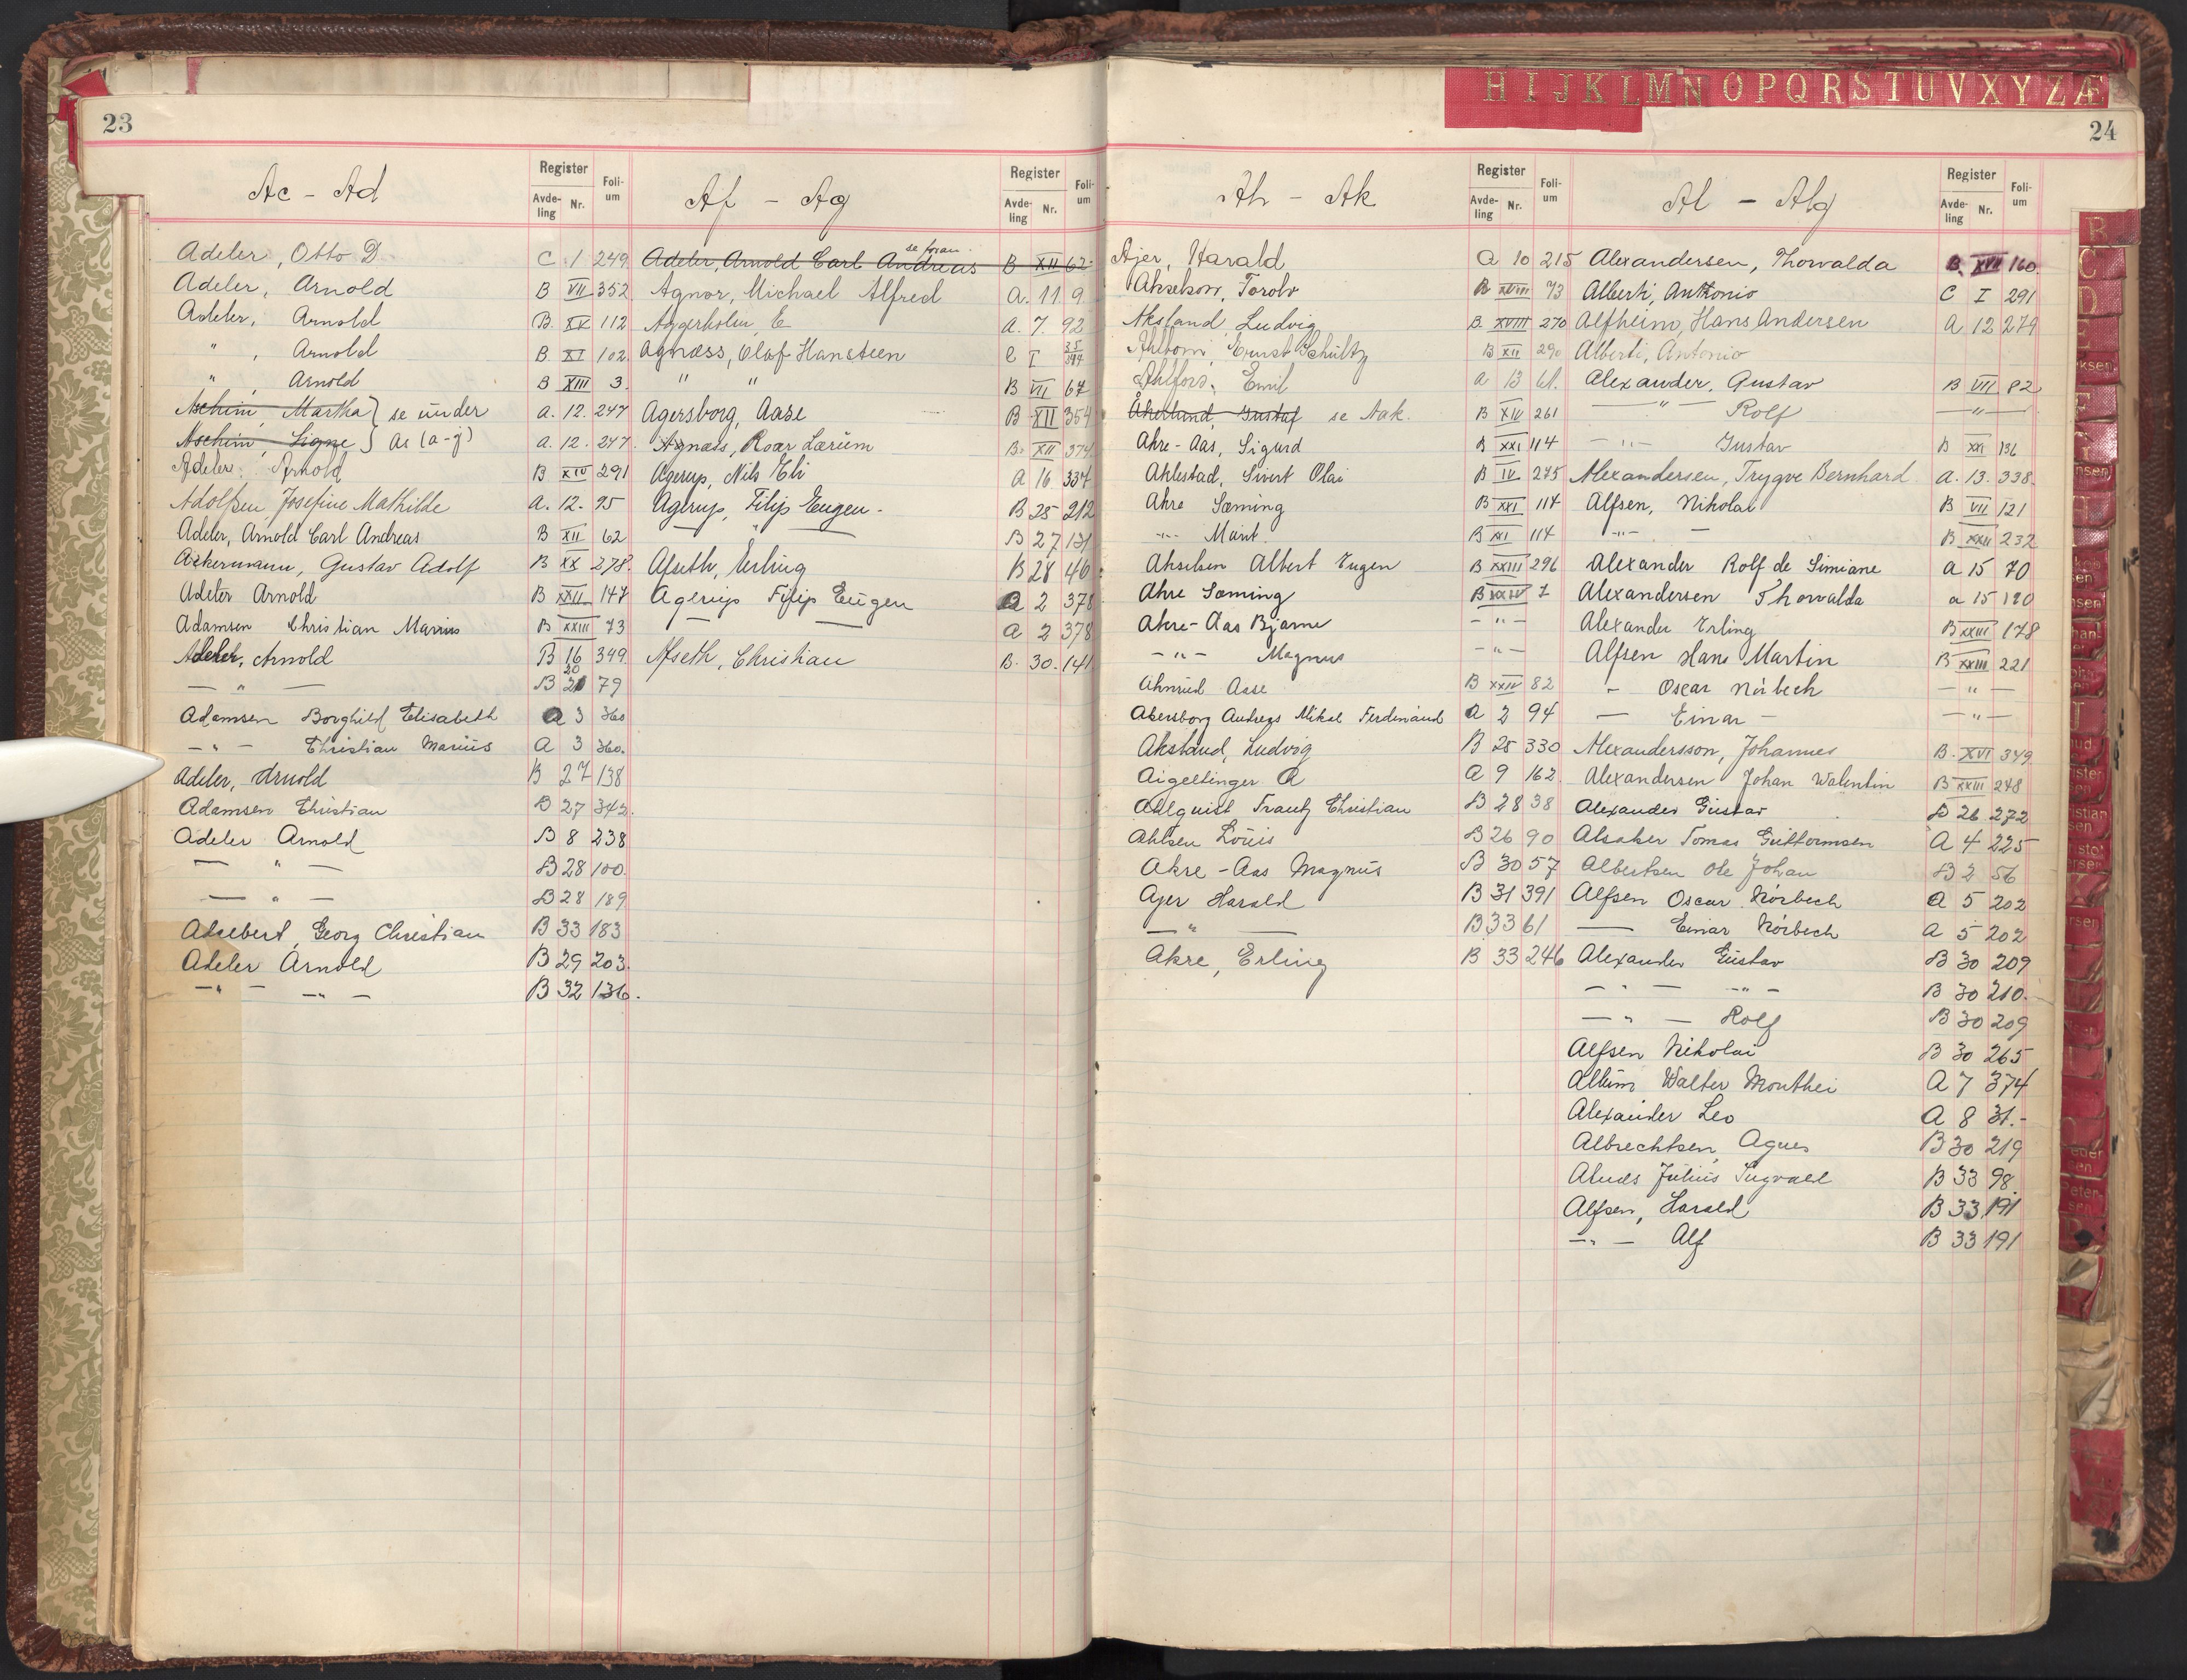 H I J K L M N O P Q R S T U V X Y Z Æ
23
Ac - Ad
Register
Avde-ling Nr.
Foli-um
Adeler, Otto D. C 1 249
Adeler, Arnold B VII 352
Adeler, Arnold B. XX 112
" , Arnold B. XI 102
" , Arnold B XIII 3.
Aschim, Martha } se under A. 12. 247
Aschim, Signe } As (a-j) A. 12. 247.
Adeler, Arnold B XIV 291
Adolfsen Josefine Mathilde A. 12. 95
Adeler, Arnold Carl Andreas B XII 62
Ackermann, Gustav Adolf B XX 278.
Adeler Arnold B XXII 147
Adamsen Christian Marius B XXIII 73
Adeler, Arnold B 16 349
— " — B 20 79
Adamsen Borghild Elisabeth A 3 360
— " — Christian Marius A 3 360.
Adeler, Arnold B 27 138
Adamsen Christian B 27 342.
Adeler Arnold B 8 238
— " — B 28 100
— " — B 28 189
Georg Christian B 33 183
Adeler Arnold B 29 203.
— " — — " — B 32 136.
Af - Ag
Register
Avde-ling Nr.
Foli-um
se foran.
Adeler, Arnold Carl Andreas B XII 62
Agnor, Michael Alfred A. 11 9
Aggerholm, E A. 7. 92
Agnæss, Olaf Hansteen C I 35
" " B VII 67
Agersborg, Aase B XII 354
Agnæss, Roar Lærum B. XII 374
Agerup, Nils Eli A 16 334
Agerup, Filip Eugen - B 25 212
— " — B 27 131
Afseth, Erling B 28 40
Agerup Filip Eugen A 2 378
— — A 2 378
Afseth, Christian B. 30. 141
24
Ah - Ak
Register
Avde-ling Nr.
Foli-um
Ajer, Harald A 10 215
Torolv B XVIII 73
Aksland, Ludvig B. XVIII 270
Ahlbom, Ernst Schultz B XII 290
Ahlfors, Emil A 13 61.
Åkerlund, Gustaf se Aak. B XIV 261
Ahre-Aas, Sigurd B XXI 114
Ahlestad, Sivert Olai B IV 275
Ahre Sæming B XXI 114
-"- Marit. B XXI 114
Albert Eugen B XXIII 296
Ahre Sæming B XXIV 7
Ahre-Aas Bjarne — " —
— " — Magnus — " —
Ahnrud Aase B XXIV 82
Akersborg Andreas Mikal Ferdinand A 2 94
Aksland, Ludvig B 25 330
Aigeltinger A A 9 162.
Ahlquist Frantz Christian B 28 38
Ahlsen Louis B 26 90
Akre - Aas Magnus B 30 57
Ajer Harald B 31 391
— " — B 33 61
Akre, Erling B 33 246
Al - Alg
Register
Avde-ling Nr.
Foli-um
Alexandersen, Thorvalda B. XVII 160.
Alberti, Anthonio C I 291
Alfheim, Hans Andersen A 12 279
Alberti, Antonio
Alexander, Gustav B VII 82
— " — Rolf — " —
— " — Gustav B XXI 136
Alexandersen, Trygve Bernhard A. 13. 338.
Alfsen, Nikolai B VII 121
— " — — B XXII 232
Alexander Rolf de Simiane A 15 70
Alexandersen Thorvalda A 15 120
Alexander Erling B XXIII 178
Alfsen Hans Martin B XXIII 221
- Oscar Nórbech — " —
— Einar - — " —
Alexandersson, Johannes B. XVI 349
Alexandersen Johan Walentin B XXIII 248
Alexander Gustav B 26 272
Alsaker Tomas Guttormsen A 4 225
Albertsen Ole Johan B 2 56
Alfsen Oscar Nórbech A 5 202
— Einar Nórbech A 5 202
Alexander Gustav B 30 209
— " — — " — B 30 210.
— " — Rolf B 30 209
Alfsen Nikolai B 30 265
Album Walter Monthei A 7 374
Alexander Leo A 8 31.-
Albrechtsen, Agnes B 30 219
Julius Ingvald B 33 98.
Alfsen, Harald B 33 191
— " — Alf B 33 191